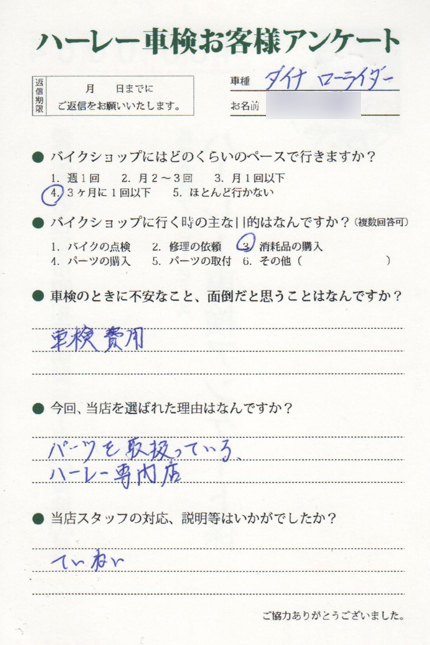 ハーレー車検お客様アンケート
返信期限
月　日までに
ご返信をお願いいたします。
車種 ダイナ ローライダー
お名前
● バイクショップにはどのくらいのペースで行きますか？
1. 週1回　2. 月2〜3回　3. 月1回以下
4. 3ヶ月に1回以下　5. ほとんど行かない
● バイクショップに行く時の主な目的はなんですか？（複数回答可）
1. バイクの点検　2. 修理の依頼　3. 消耗品の購入
4. パーツの購入　5. パーツの取付　6. その他（　　　　　）
● 車検のときに不安なこと、面倒だと思うことはなんですか？
車検費用
● 今回、当店を選ばれた理由はなんですか？
パーツを取扱っている、
ハーレー専門店
● 当店スタッフの対応、説明等はいかがでしたか？
ていねい
ご協力ありがとうございました。